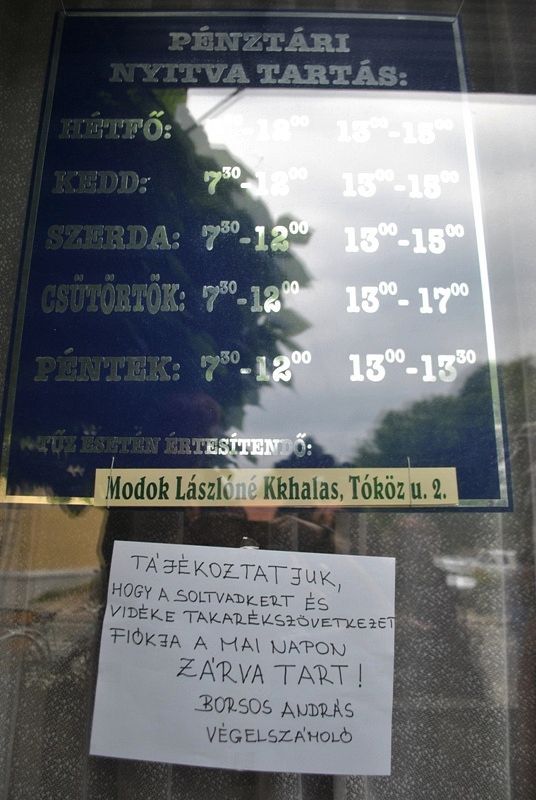 PÉNZTÁRI
NYITVA TARTÁS:
HÉTFŐ: -12⁰⁰ 13⁰⁰-15⁰⁰
KEDD: 7³⁰-12⁰⁰ 13⁰⁰-15⁰⁰
SZERDA: 7³⁰-12⁰⁰ 13⁰⁰-15⁰⁰
CSÜTÖRTÖK: 7³⁰-12⁰⁰ 13⁰⁰-17⁰⁰
PÉNTEK: 7³⁰-12⁰⁰ 13⁰⁰-13³⁰
TŰZ ESETÉN ÉRTESÍTENDŐ:
Modok Lászlóné Kkhalas, Tóköz u. 2.
TÁJÉKOZTATJUK,
HOGY A SOLTVADKERT ÉS
VIDÉKE TAKARÉKSZÖVETKEZET
FIÓKJA A MAI NAPON
ZÁRVA TART!
BORSOS ANDRÁS
VÉGELSZÁMOLÓ